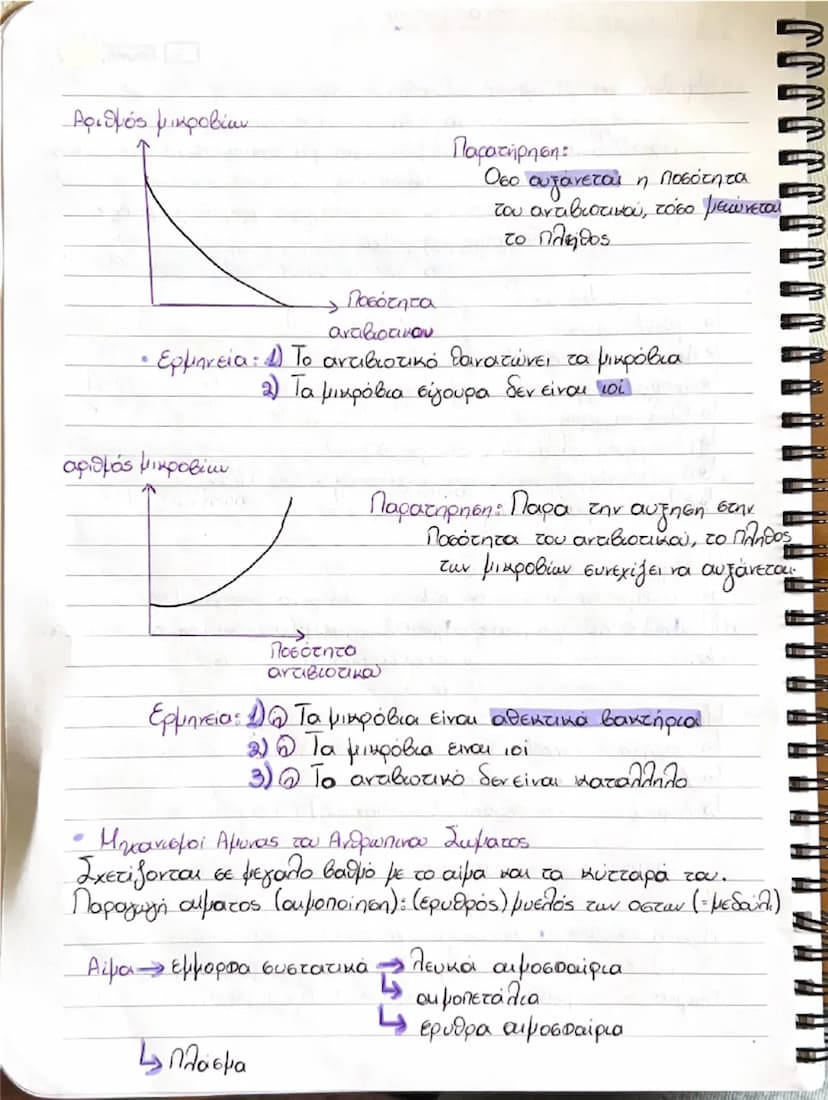 Αριθμός μικροβίων
Παρατήρηση:
Όσο αυξάνεται η ποσότητα
του αντιβιοτικού, τόσο μειώνεται
το πλήθος
Ποσότητα
αντιβιοτικού
• Ερμηνεία: 1) Το αντιβιοτικό θανατώνει τα μικρόβια
2) Τα μικρόβια σίγουρα δεν είναι ιοί
αριθμός μικροβίων
Παρατήρηση: Παρά την αυξηση στην
ποσότητα του αντιβιοτικού, το πληθος
των μικροβίων συνεχίζει να αυξάνεται.
Ποσότητα
αντιβιοτικού
Ερμηνεία: 1) ή Τα μικρόβια είναι αθεκτικά βακτήρια
2) ή Τα μικρόβια ειναι ιοί
3) ή Το αντιβιοτικό δεν είναι καταλληλο
• Μηχανισμοί Αμυνας του Ανθρωπινου Σωματος
Σχετίζονται σε μεγαλο βαθμό με το αίμα και τα κύτταρά του.
Παραγωγή αιματος (αιμοποίηση): (ερυθρός) μυελός των οστων (=μεδούλι)
Αίμα → εμμορφα συστατικά → λευκά αιμοσφαίρια
↳ αιμοπετάλια
↳ ερυθρα αιμοσφαιρια
↳ Πλάσμα